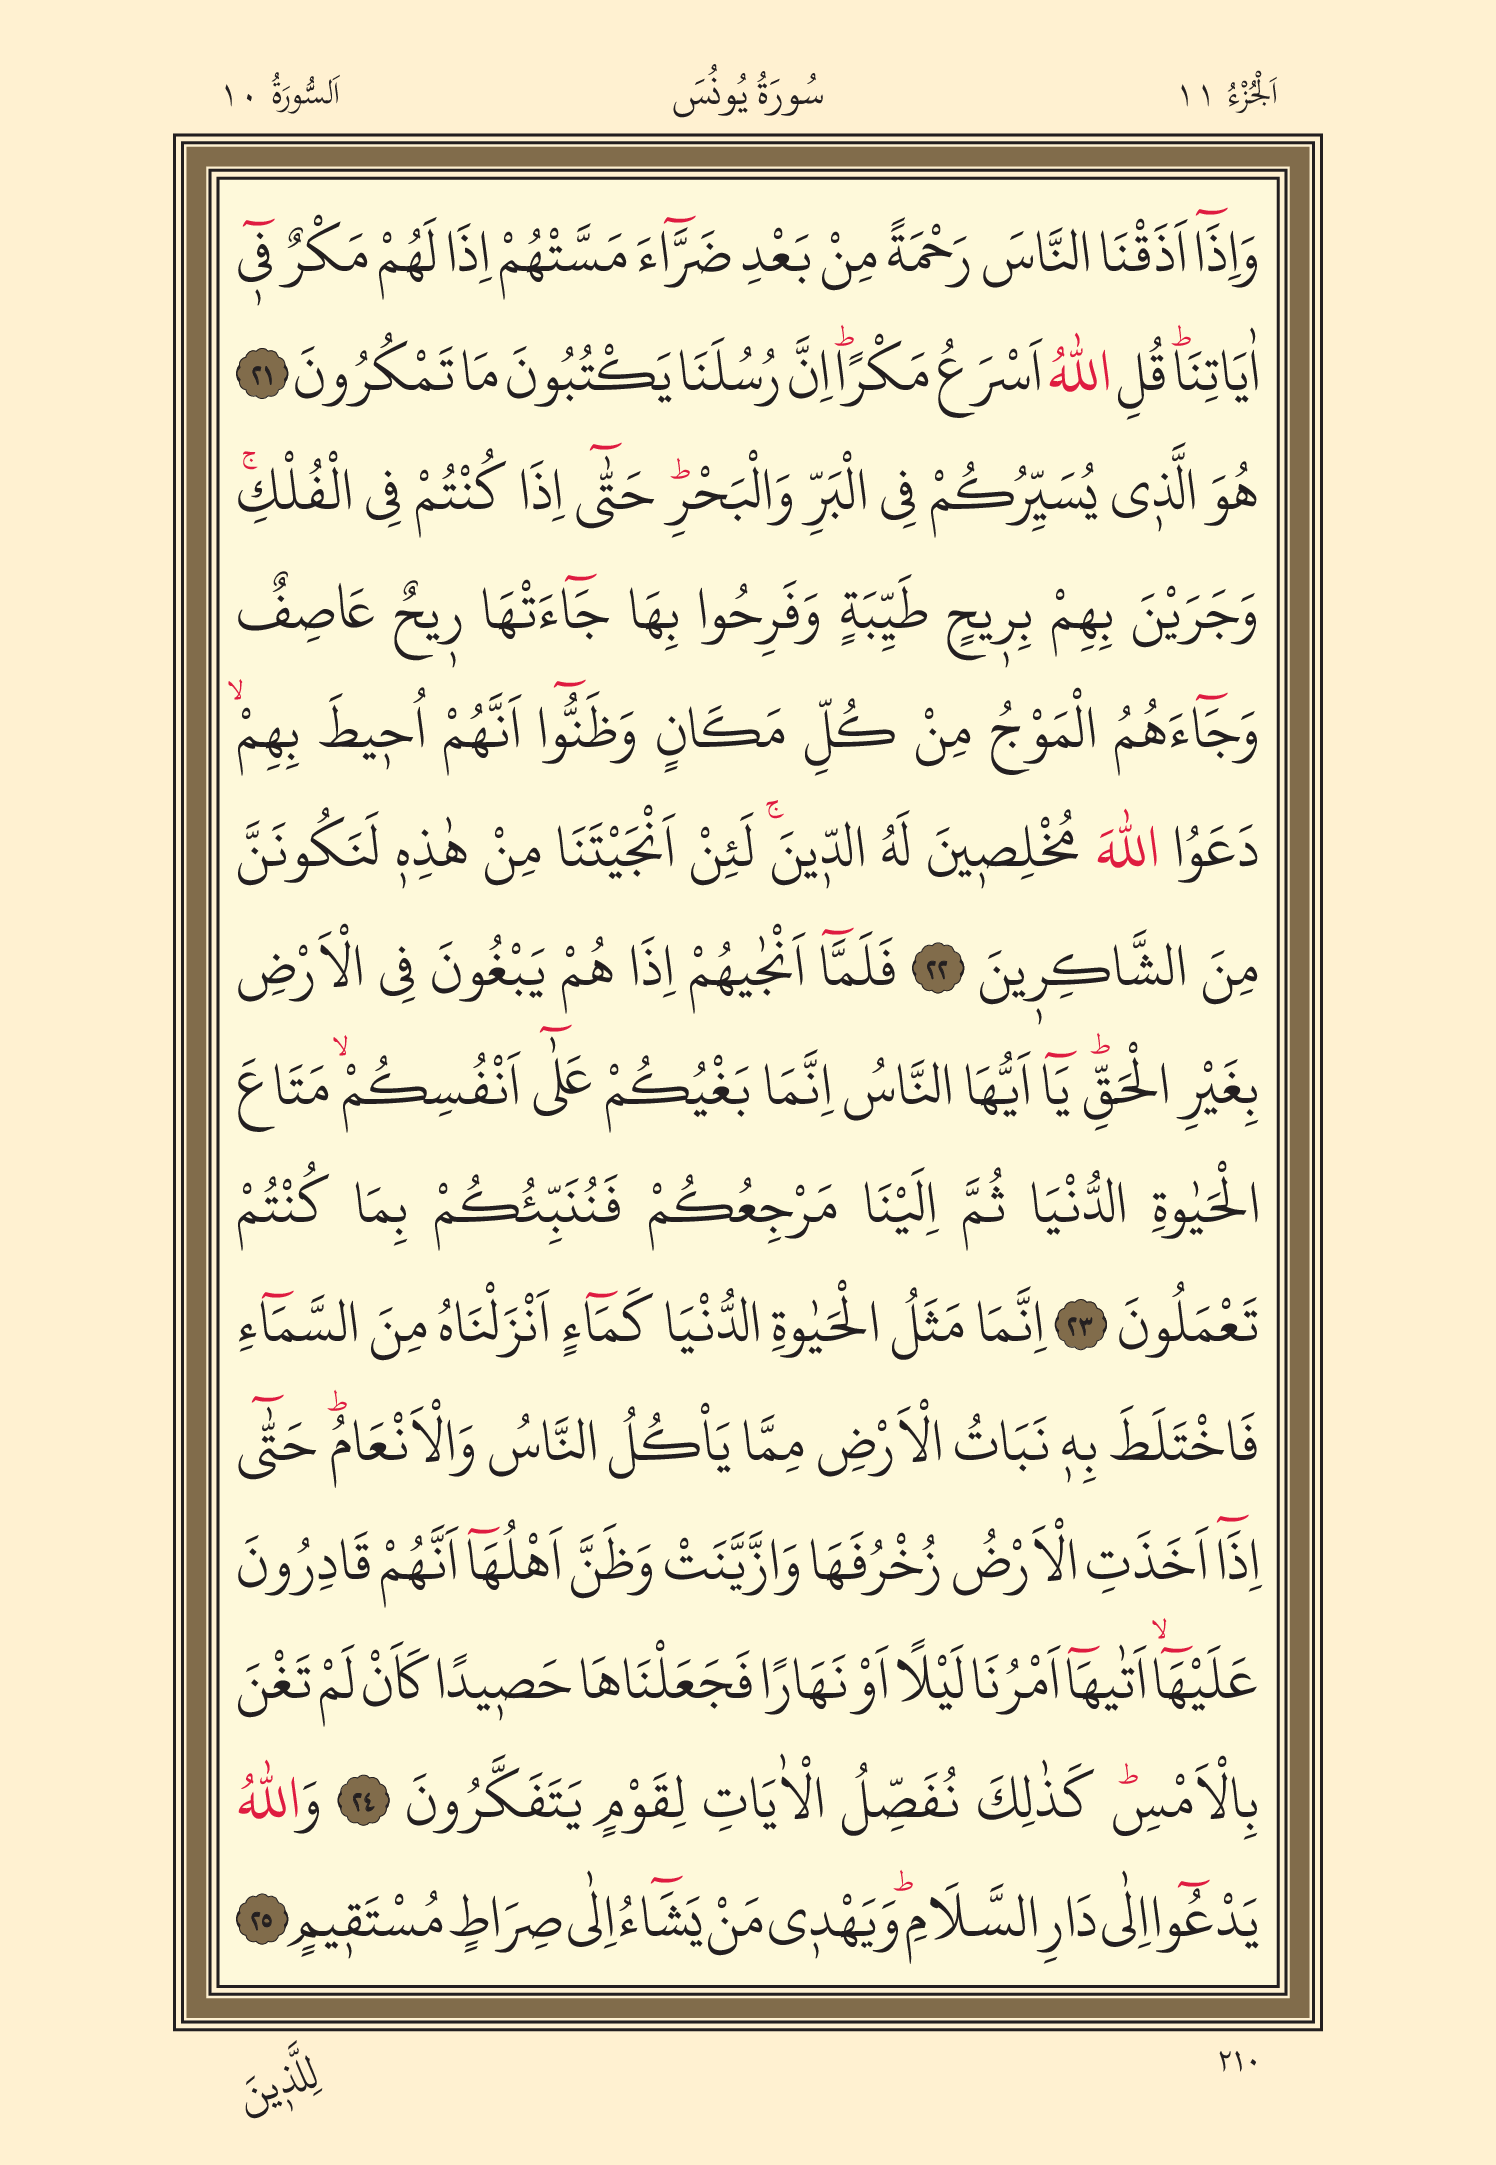 اَلْجُزْءُ ١١ سُورَةُ يُونُسَ اَلسُّورَةُ ١٠
وَاِذَٓا اَذَقْنَا النَّاسَ رَحْمَةً مِنْ بَعْدِ ضَرَّٓاءَ مَسَّتْهُمْ اِذَا لَهُمْ مَكْرٌ فٖٓي
اٰيَاتِنَاؕ قُلِ اللّٰهُ اَسْرَعُ مَكْرًاؕ اِنَّ رُسُلَنَا يَكْتُبُونَ مَا تَمْكُرُونَ ٢١
هُوَ الَّذٖى يُسَيِّرُكُمْ فِى الْبَرِّ وَالْبَحْرِؕ حَتّٰٓى اِذَا كُنْتُمْ فِى الْفُلْكِۚ
وَجَرَيْنَ بِهِمْ بِرٖيحٍ طَيِّبَةٍ وَفَرِحُوا بِهَا جَٓاءَتْهَا رٖيحٌ عَاصِفٌ
وَجَٓاءَهُمُ الْمَوْجُ مِنْ كُلِّ مَكَانٍ وَظَنُّٓوا اَنَّهُمْ اُحٖيطَ بِهِمْۙ
دَعَوُا اللّٰهَ مُخْلِصٖينَ لَهُ الدّٖينَۚ لَئِنْ اَنْجَيْتَنَا مِنْ هٰذِهٖ لَنَكُونَنَّ
مِنَ الشَّاكِرٖينَ ٢٢ فَلَمَّٓا اَنْجٰيهُمْ اِذَا هُمْ يَبْغُونَ فِى الْاَرْضِ
بِغَيْرِ الْحَقِّؕ يَٓا اَيُّهَا النَّاسُ اِنَّمَا بَغْيُكُمْ عَلٰٓى اَنْفُسِكُمْۙ مَتَاعَ
الْحَيٰوةِ الدُّنْيَا ثُمَّ اِلَيْنَا مَرْجِعُكُمْ فَنُنَبِّئُكُمْ بِمَا كُنْتُمْ
تَعْمَلُونَ ٢٣ اِنَّمَا مَثَلُ الْحَيٰوةِ الدُّنْيَا كَمَٓاءٍ اَنْزَلْنَاهُ مِنَ السَّمَٓاءِ
فَاخْتَلَطَ بِهٖ نَبَاتُ الْاَرْضِ مِمَّا يَاْكُلُ النَّاسُ وَالْاَنْعَامُؕ حَتّٰٓى
اِذَٓا اَخَذَتِ الْاَرْضُ زُخْرُفَهَا وَازَّيَّنَتْ وَظَنَّ اَهْلُهَٓا اَنَّهُمْ قَادِرُونَ
عَلَيْهَٓاۙ اَتٰيهَٓا اَمْرُنَا لَيْلًا اَوْ نَهَارًا فَجَعَلْنَاهَا حَصٖيدًا كَاَنْ لَمْ تَغْنَ
بِالْاَمْسِؕ كَذٰلِكَ نُفَصِّلُ الْاٰيَاتِ لِقَوْمٍ يَتَفَكَّرُونَ ٢٤ وَاللّٰهُ
يَدْعُٓوا اِلٰى دَارِ السَّلَامِؕ وَيَهْدٖى مَنْ يَشَٓاءُ اِلٰى صِرَاطٍ مُسْتَقٖيمٍ ٢٥
٢١٠ لِلَّذٖينَ